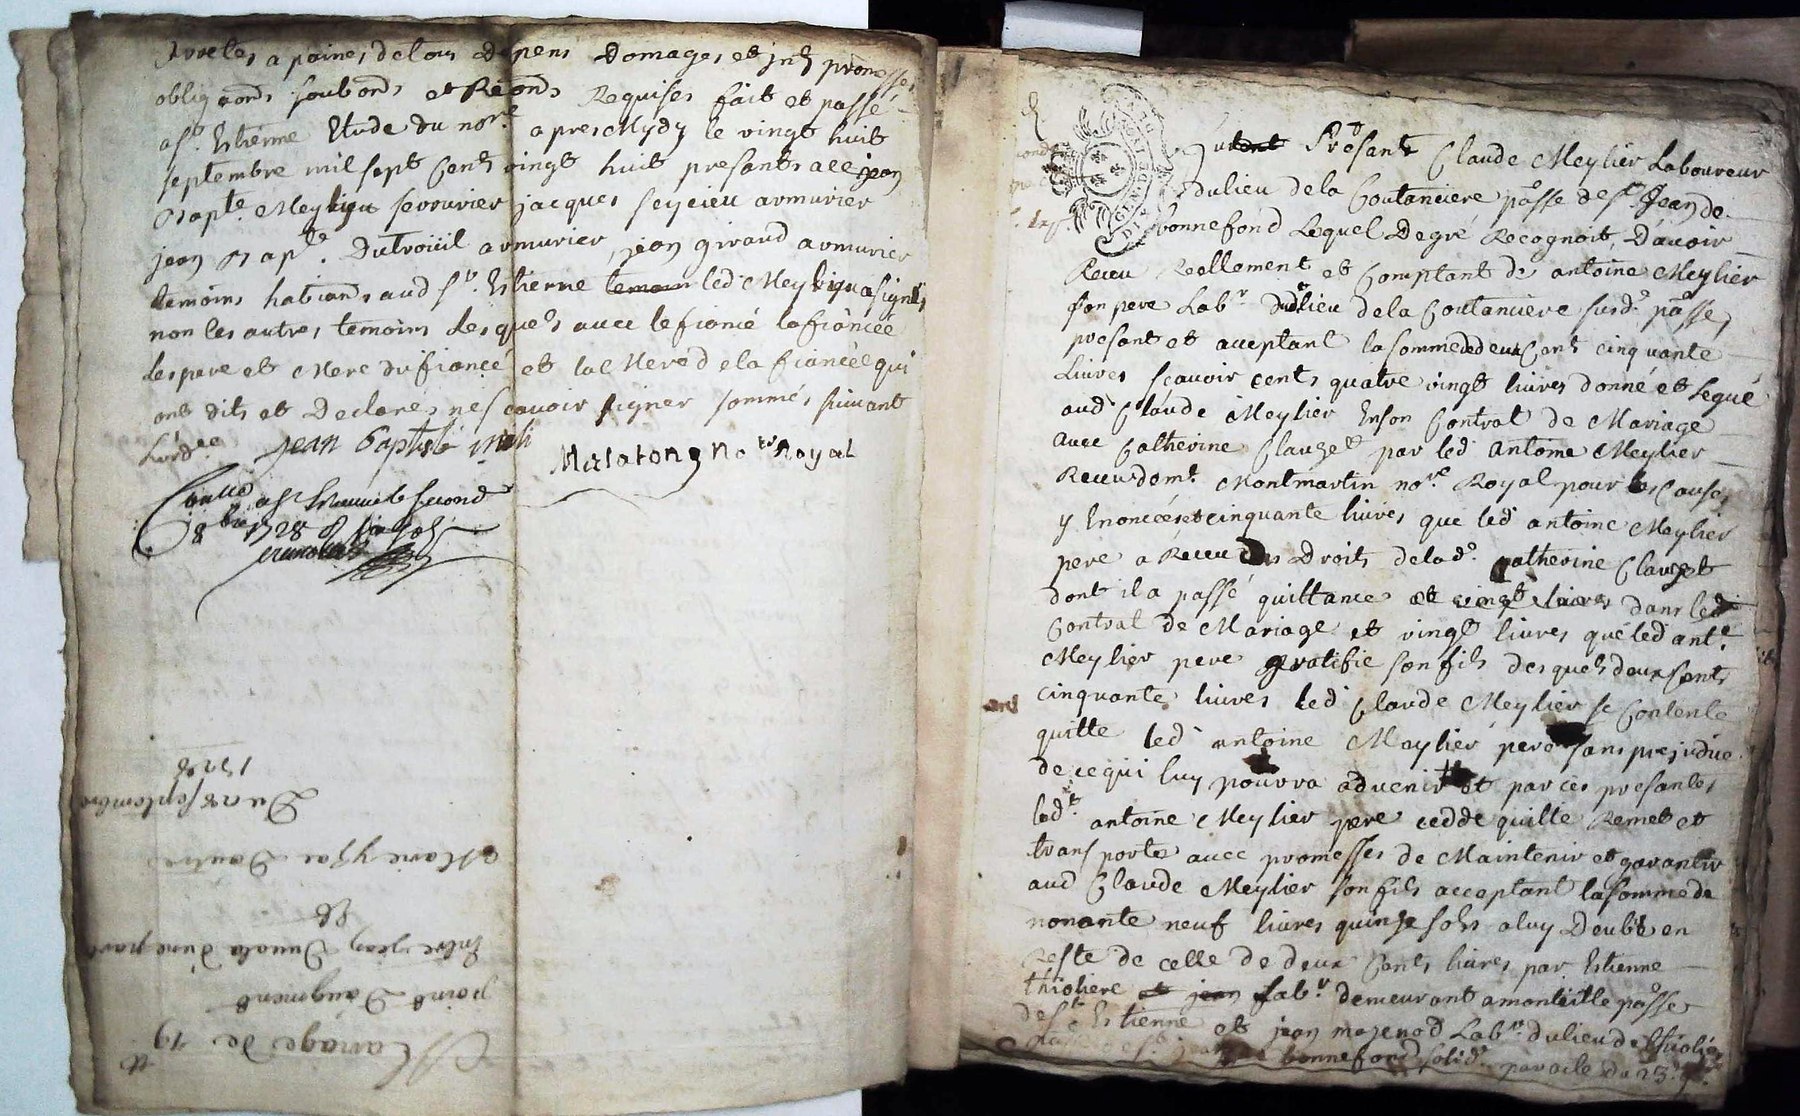 a paines de tous Depens Domages et jnts promesses
obligaons soubons et Reaons Requises fait et passé
a St. Estienne Etude du nore. apres Mydy le vingt huit
septembre mil sept Cents vingt huit presants alle jean
Bapte. Serrurier jacques armurier
jean Bapte. Dutroüil armurier, jean giraud armurier
temoins habitans aud St. Estienne led signé
non les autres temoins lesquels auec le fiancé la fiancée
les pere et Mere du fiancé et la Mere de la fiancée qui
ont dits et Declarés ne scauoir signer sommés suiuant
Lordce
jean baptiste
Malatong Nore Royal
a St Estienne le second
8bre 1728
Mariage de 19
point Daugment
Entre jean d'une part
Et
Marie Dautre
Du 28 septembre
1728
DE GEN DE LION
Presant Claude Meylier Laboureur
du lieu de la Coutanciere passe de St. Jean de
bonnefond Lequel De gré Recognoit, D'auoir
Receu Reellement et Comptant de antoine Meylier
son pere Labr Dud lieu de la Coutanciere susde. passe
presant et acceptant la somme de deux Cents cinquante
Liures scauoir cents quatre vingt liures donné et Legué
aud Claude Meylier En son Contrat de Mariage
auec Catherine Clauzet par led antoine Meylier
Receu dem. Montmartin nore. Royal pour les Causes
y Enoncées et cinquante liures que led antoine Meylier
pere a Receu des Droits de lade. Catherine Clauzet
dont il a passé quittance et vingt liures dans led
Contrat de Mariage et vingt liures que led ante.
Meylier pere gratifie son fils desquels deux Cents
cinquante liures led Claude Meylier se Contente
quitte led antoine Meylier pere sans prejudice
de ce qui luy pourra aduenir et par ces presantes
ledt. antoine Meylier pere cedde quitte Remet et
transporte auec promesses de Maintenir et garantir
aud Claude Meylier son fils acceptant la somme de
nonante neuf liures quinze sols a luy Deubs en
Reste de celle de deux Cents liures par Estienne
thioliere et jean Labr. demeurant a monteille passe
de St Estienne et jean magenod Labr. du lieu de
bonnefond solidt. par acte du 23.